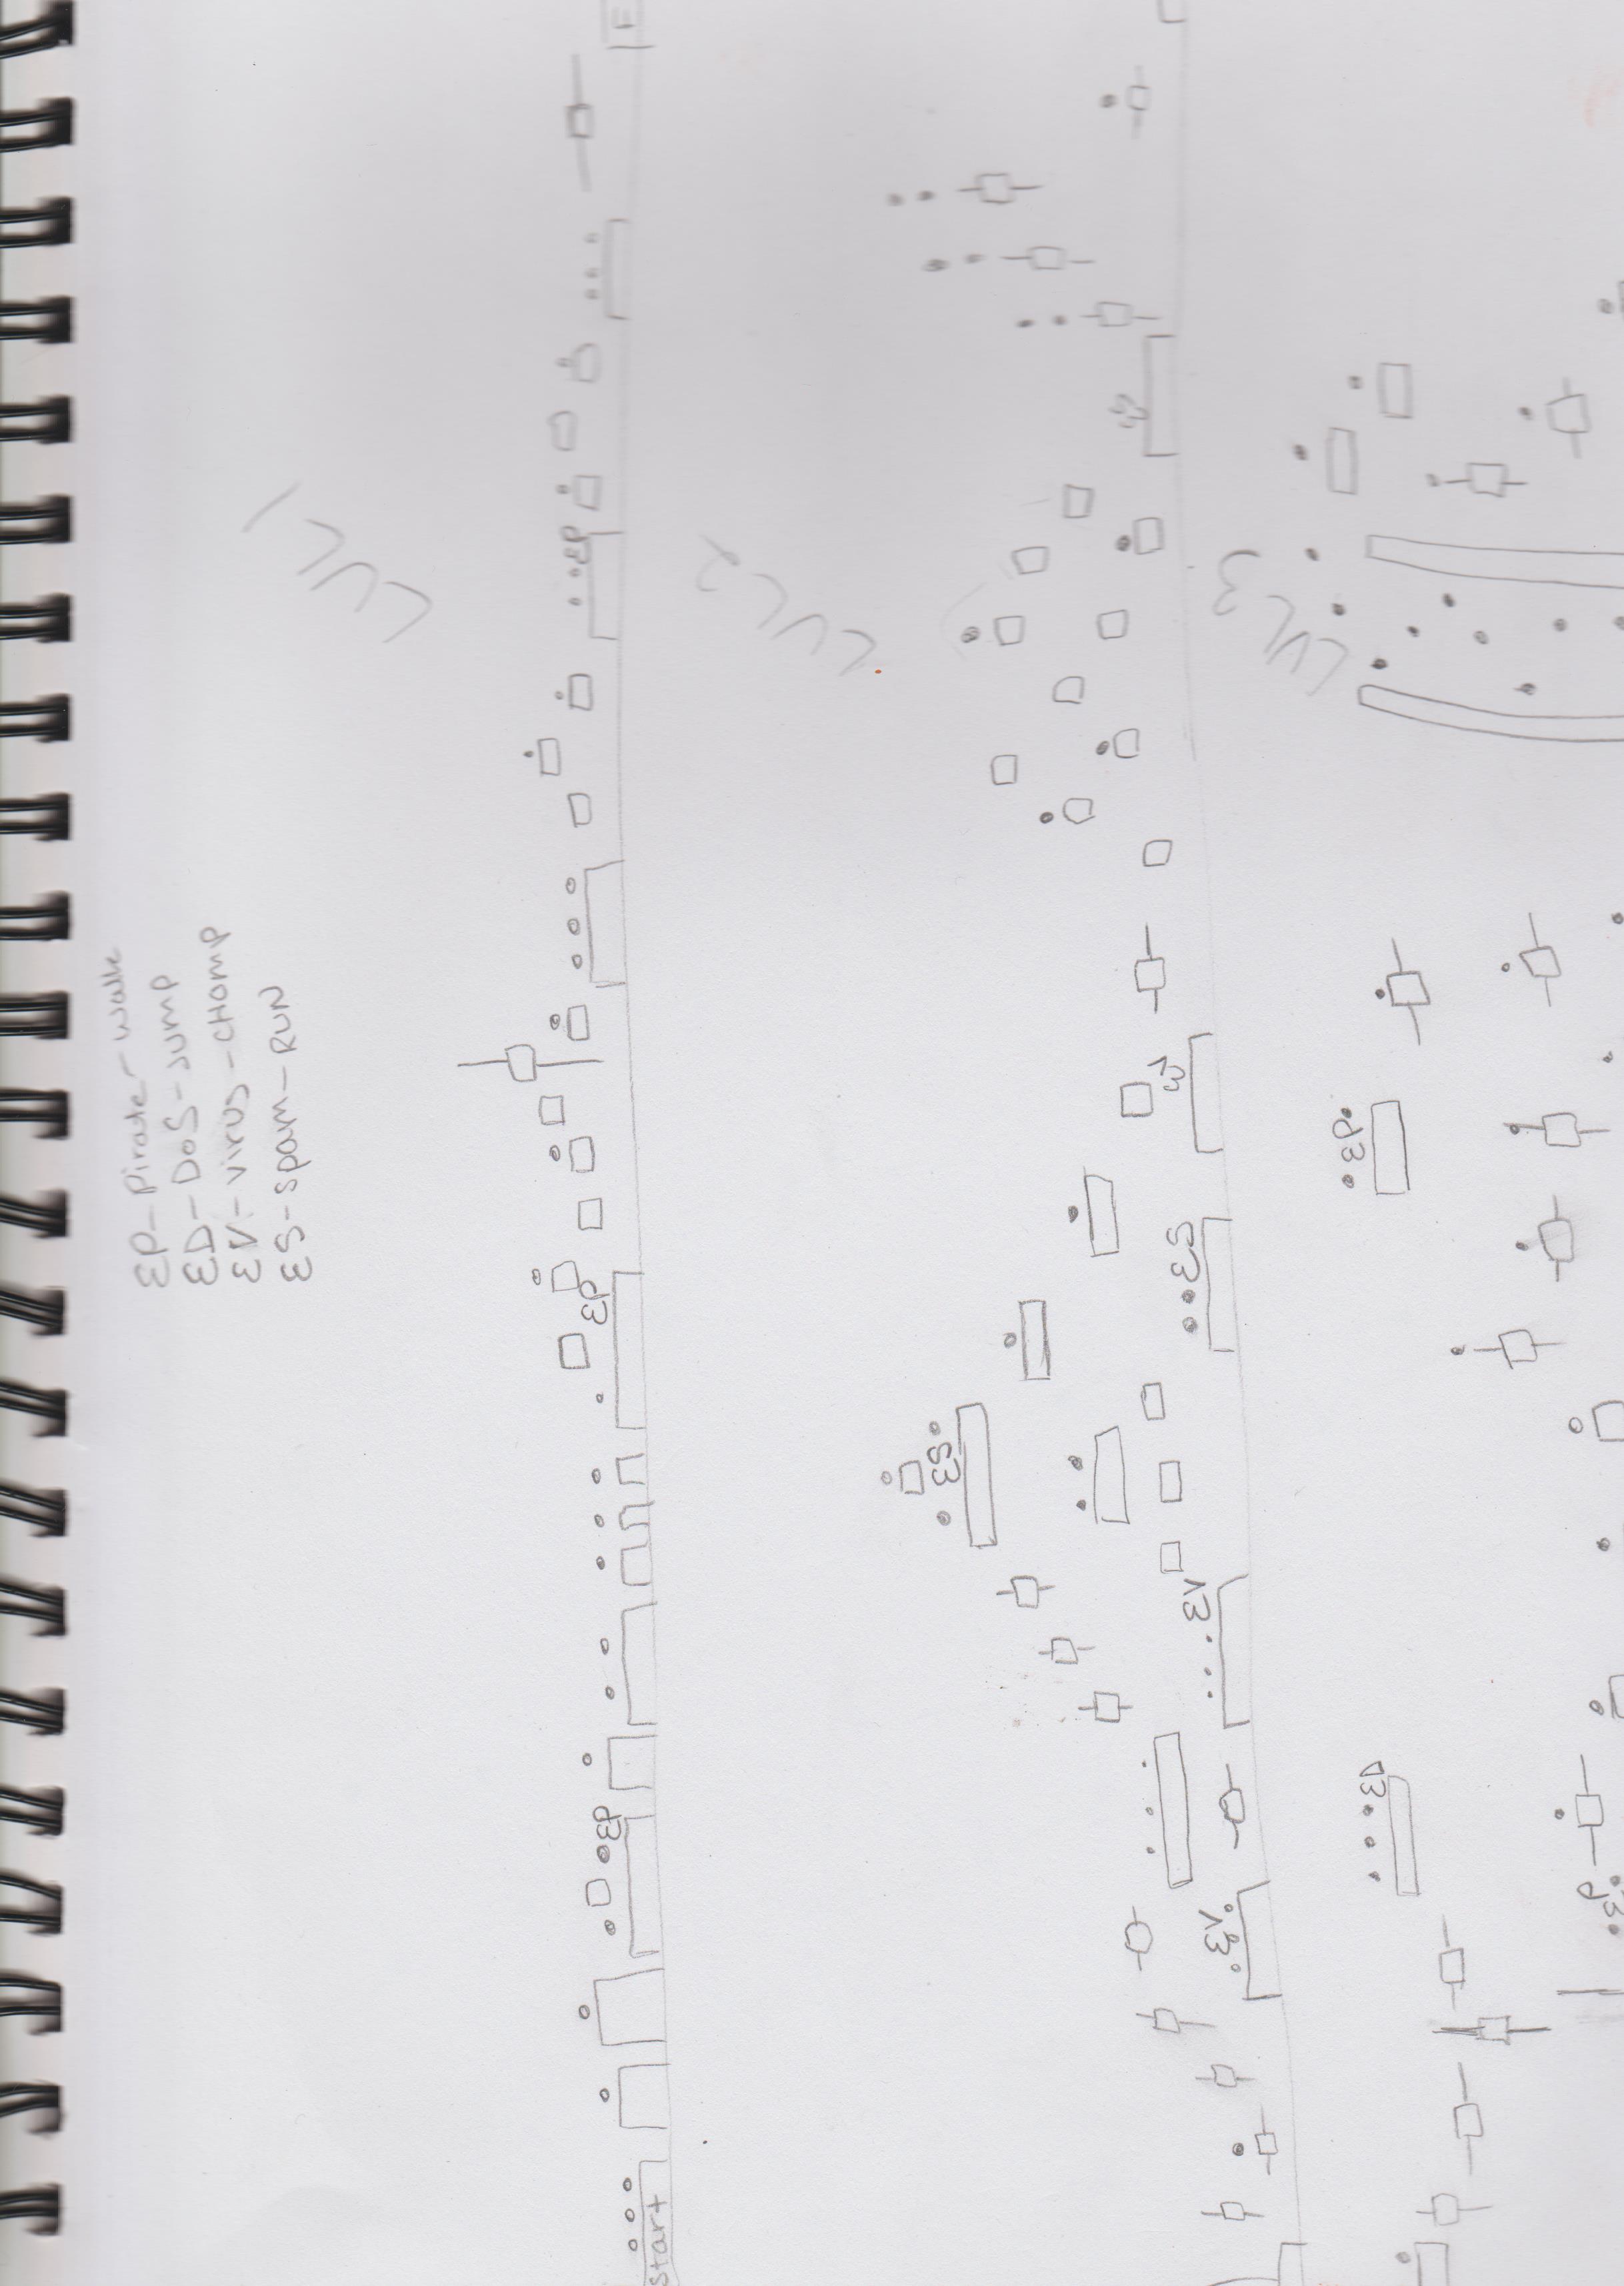 EP-Pirate-walk
ED-DoS-Jump
EV-virus-CHOMP
ES-spam-RUN
LVL 1
EP
EP
EP
start
E
LVL 2
ES
EV
EV
ES
EV
LVL 3
ED
EP
EP